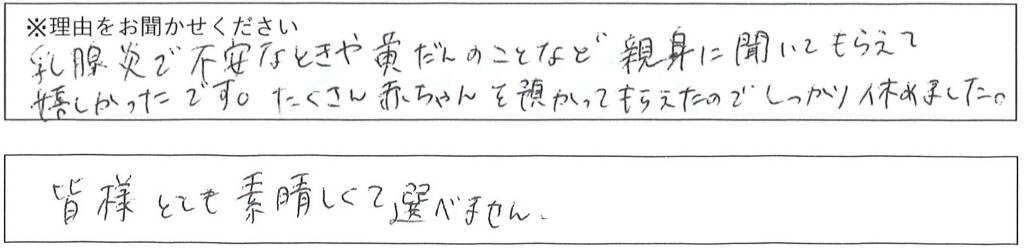 ※理由をお聞かせください
乳腺炎で不安なときや黄だんのことなど親身に聞いてもらえて
嬉しかったです。たくさん赤ちゃんを預かってもらえたのでしっかり休めました。
皆様とても素晴しくて選べません.